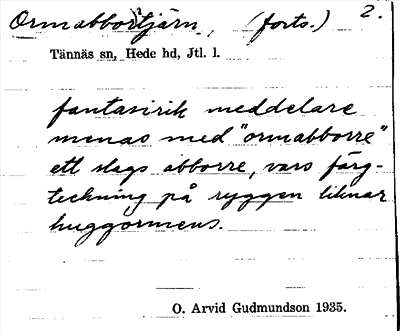 Ormabborrtjärn, (forts.) 2.
Tännäs sn, Hede hd, Jtl. l.
fantasirik meddelare
menas med "ormabborre"
ett slags abborre, vars färg-
teckning på ryggen liknar
huggormens.
O. Arvid Gudmundson 1935.